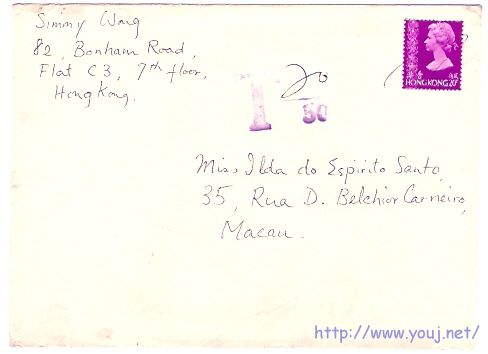 Simmy Wong
82, Bonham Road,
Flat C3, 7th floor,
Hong Kong.
T 20
50
HONG KONG 20¢
Miss Ilda do Espirito Santo,
35, Rua D. Belchior Carneiro,
Macau.
http://www.youj.net/